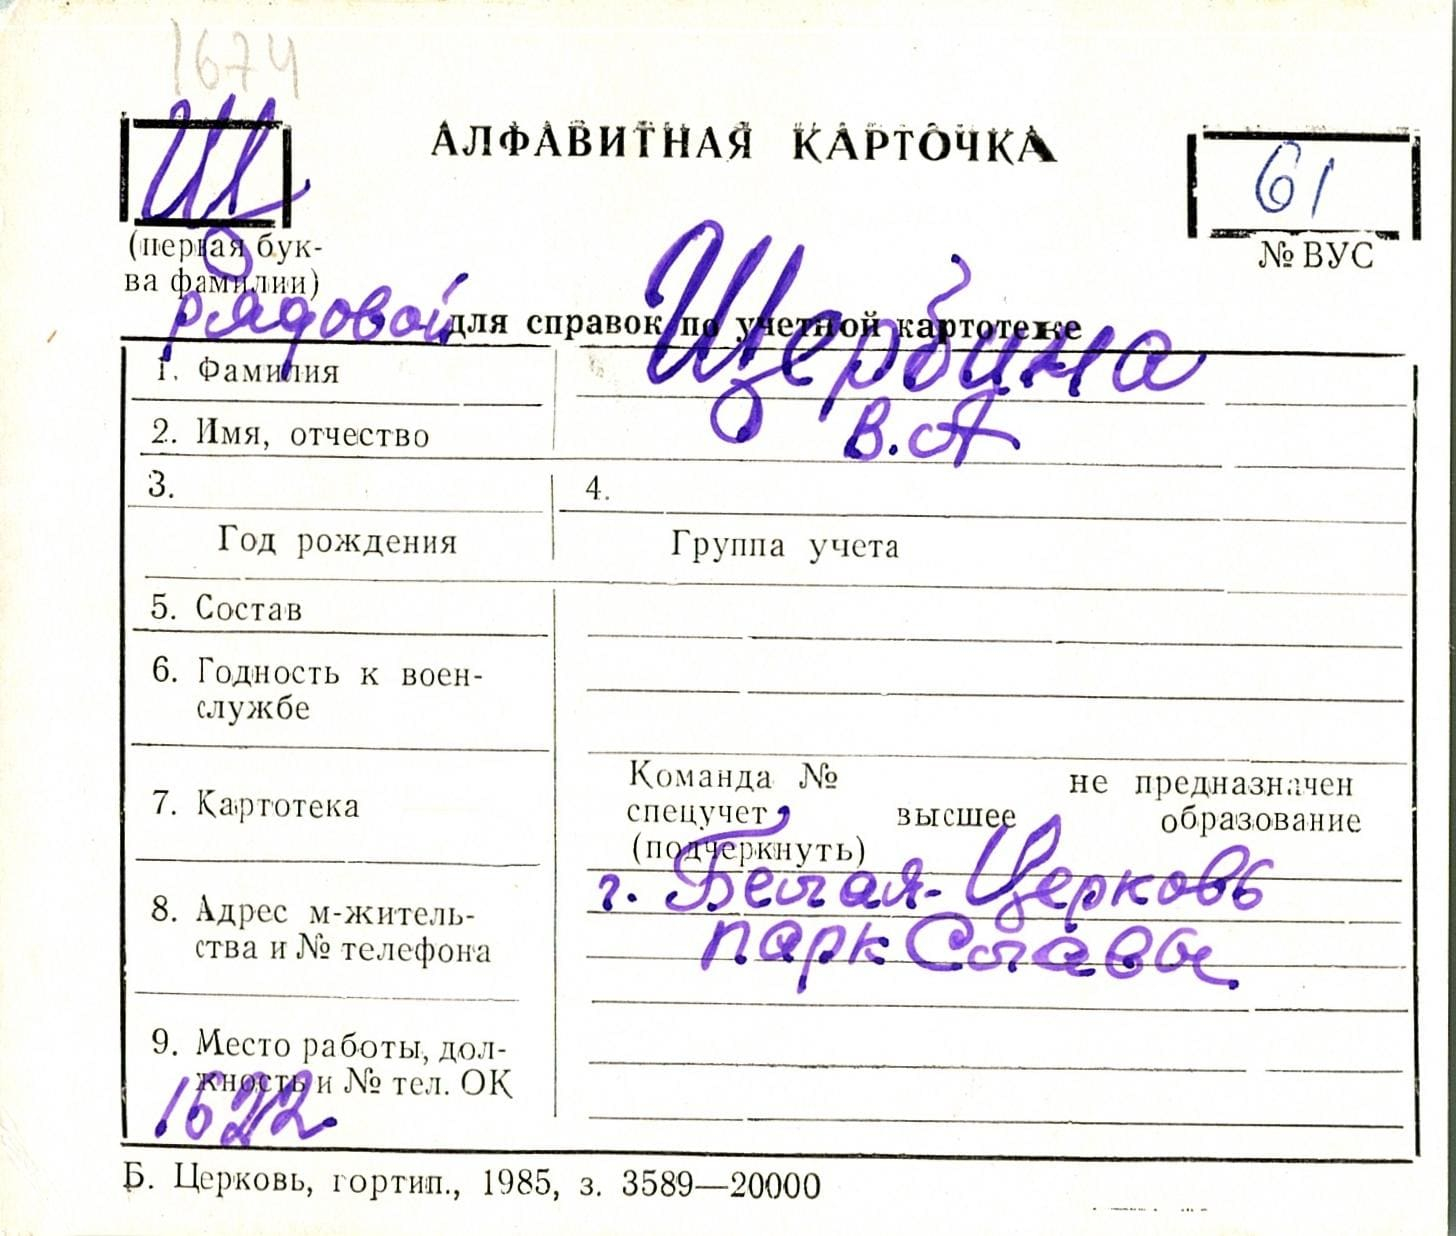 1674
Щ
АЛФАВИТНАЯ КАРТОЧКА
61
(первая бук-
ва фамилии)
№ ВУС
рядовой
для справок по учетной картотеке
1. Фамилия Щербина
2. Имя, отчество В. А
3. 4.
Год рождения Группа учета
5. Состав
6. Годность к воен-
службе
7. Картотека
Команда № не предназначен
спецучет, высшее образование
(подчеркнуть)
8. Адрес м-житель-
ства и № телефона
г. Белая-Церковь
парк Славы
9. Место работы, дол-
жность и № тел. ОК
1522
Б. Церковь, гортип., 1985, з. 3589—20000